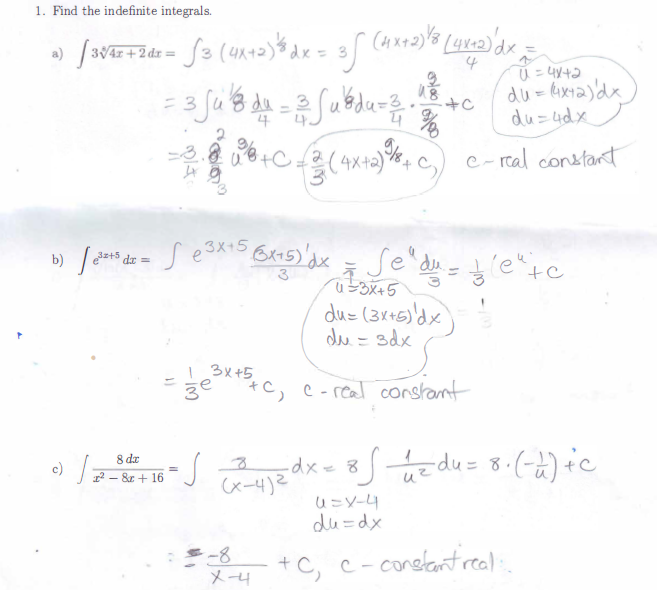 1. Find the indefinite integrals.
a) ∫ 3 ⁸√(4x + 2) dx = ∫ 3 (4x+2)^(1/8) dx = 3 ∫ (4x+2)^(1/8) (4x+2)' / 4 dx =
u = 4x+2
du = (4x+2)'dx
du = 4dx
= 3 ∫ u^(1/8) du/4 = 3/4 ∫ u^(1/8) du = 3/4 · u^(9/8) / (9/8) + C
= 3/4 · 8/9 u^(9/8) + C = 2/3 (4x+2)^(9/8) + C, C - real constant
b) ∫ e^(3x+5) dx = ∫ e^(3x+5) (3x+5)' / 3 dx = ∫ e^u du/3 = 1/3 e^u + C
u = 3x+5
du = (3x+5)'dx
du = 3dx
= 1/3 e^(3x+5) + C, C - real constant
c) ∫ 8 dx / (x² − 8x + 16) = ∫ 8 / (x-4)² dx = 8 ∫ 1/u² du = 8 · (-1/u) + C
u = x-4
du = dx
= -8 / (x-4) + C, C - constant real.